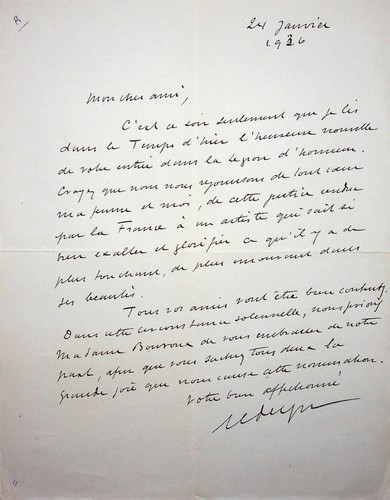 R
24 Janvier
1936
Mon cher ami,
C'est ce soir seulement que je lis
dans le Temps d'hier l'heureuse nouvelle
de votre entrée dans la Légion d'honneur.
Croyez que nous nous réjouissons de tout cœur
ma femme et moi, de cette justice rendue
par la France à un artiste qui sait si
bien exalter et glorifier ce qu'il y a de
plus touchant, de plus émouvant dans
ses beautés.
Tous vos amis vont être bien contents.
Dans cette circonstance solennelle, nous prions
Madame de vous embrasser de notre
part, afin que vous sachiez tous deux la
grande joie que nous cause cette nomination.
Votre bien affectionné